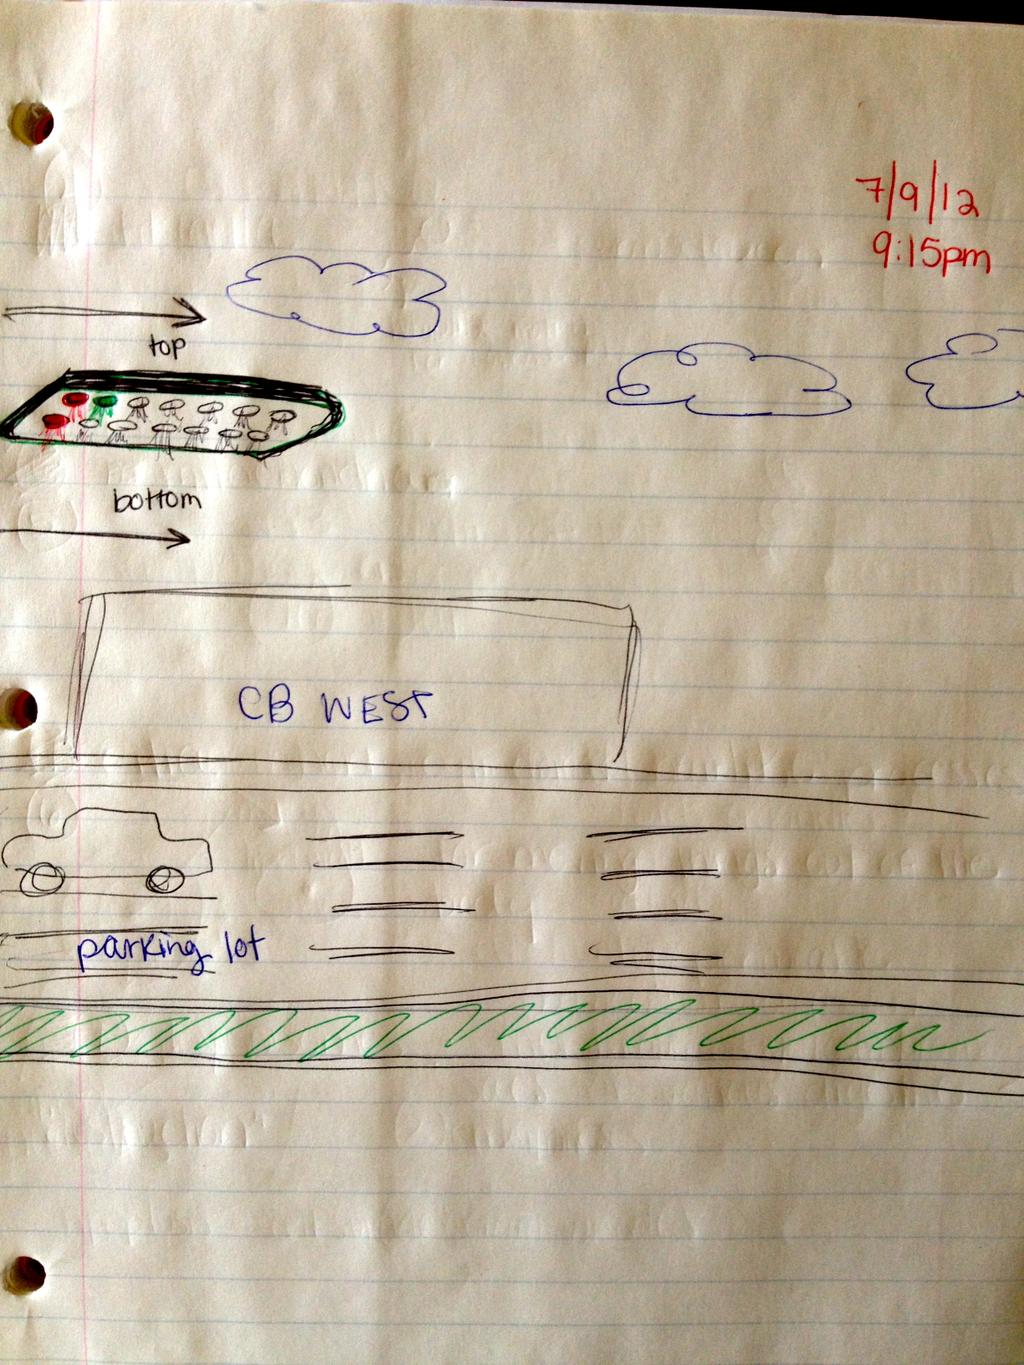 7/9/12
9:15pm
top
bottom
CB WEST
parking lot